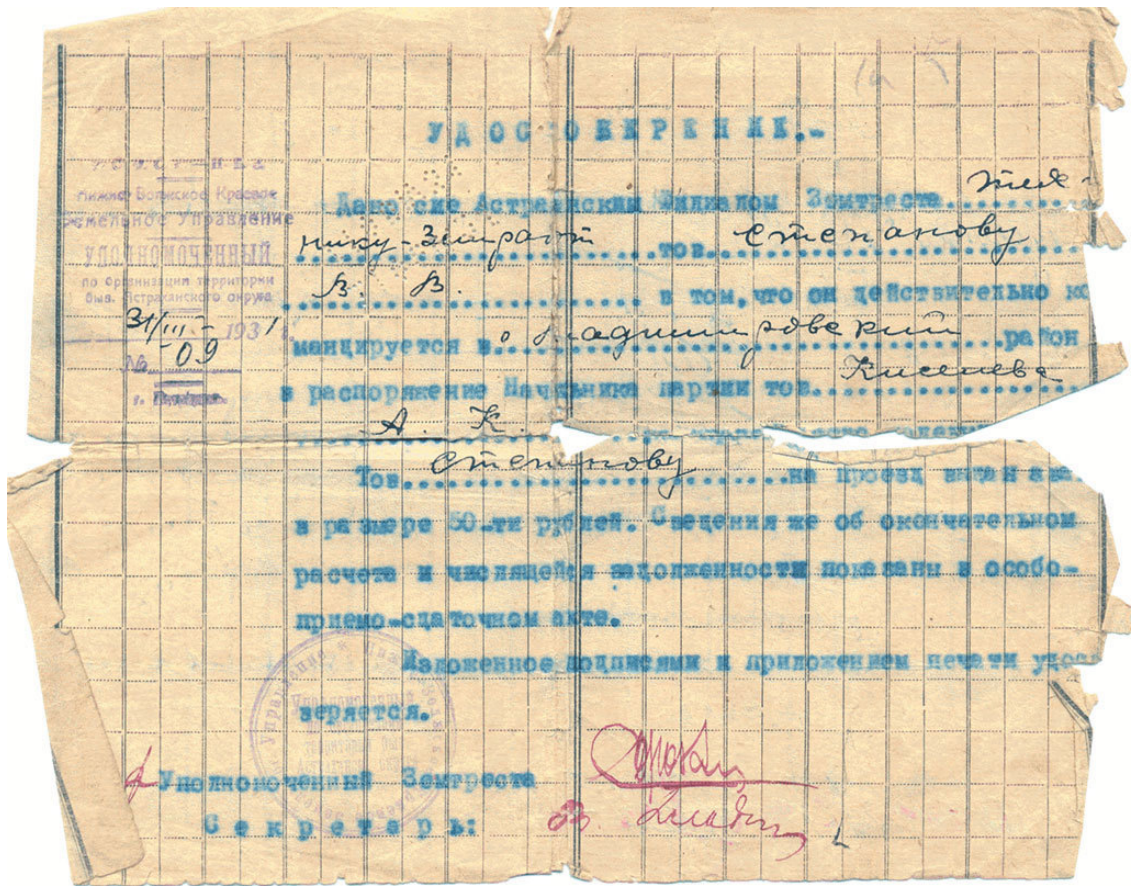 УДОСТОВЕРЕНИЕ.-
Нижне-Волжское Краевое
Земельное Управление
УПОЛНОМОЧЕННЫЙ
по организации территории
быв. Астраханского округа
31/III- 1931
№ -09
Дано сие Астраханским Филиалом Земтреста тех-
нику-Землраст тов. Степанову
В. В. в том, что он действительно ко
мандируется в Владимировский район
в распоряжение Начальника партии тов. Киселева
А. К.
Тов. Степанову на проезд выдан ава
в размере 50-ти рублей. Сведения же об окончательном
расчете и числящейся задолженности показаны в особо-
приемо-сдаточном акте.
Изложенное подписями и приложением печати удос
веряется.
Уполномоченный Земтреста
Секретарь: